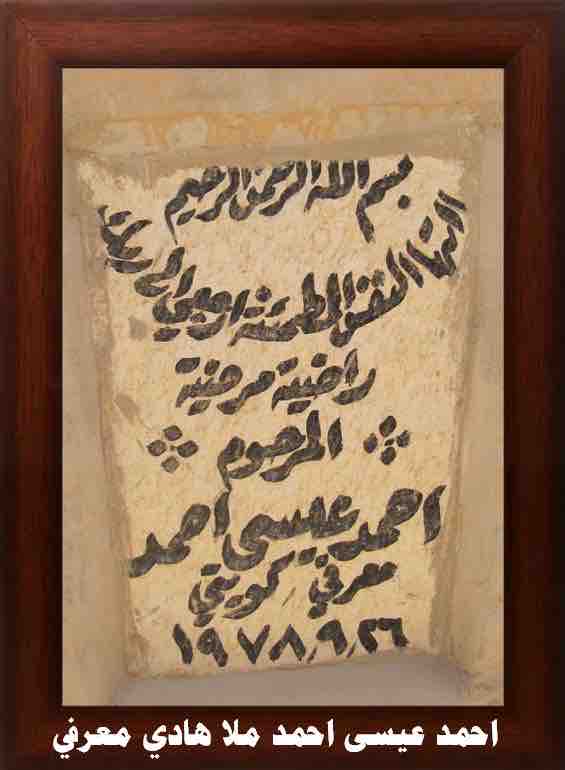 بسم الله الرحمن الرحيم
ايتها النفس المطمئنة ارجعي الى ربك
راضية مرضية
المرحوم
احمد عيسى احمد
معرفي كويتي
١٩٧٨/٩/٢٦
احمد عيسى احمد ملا هادي معرفي